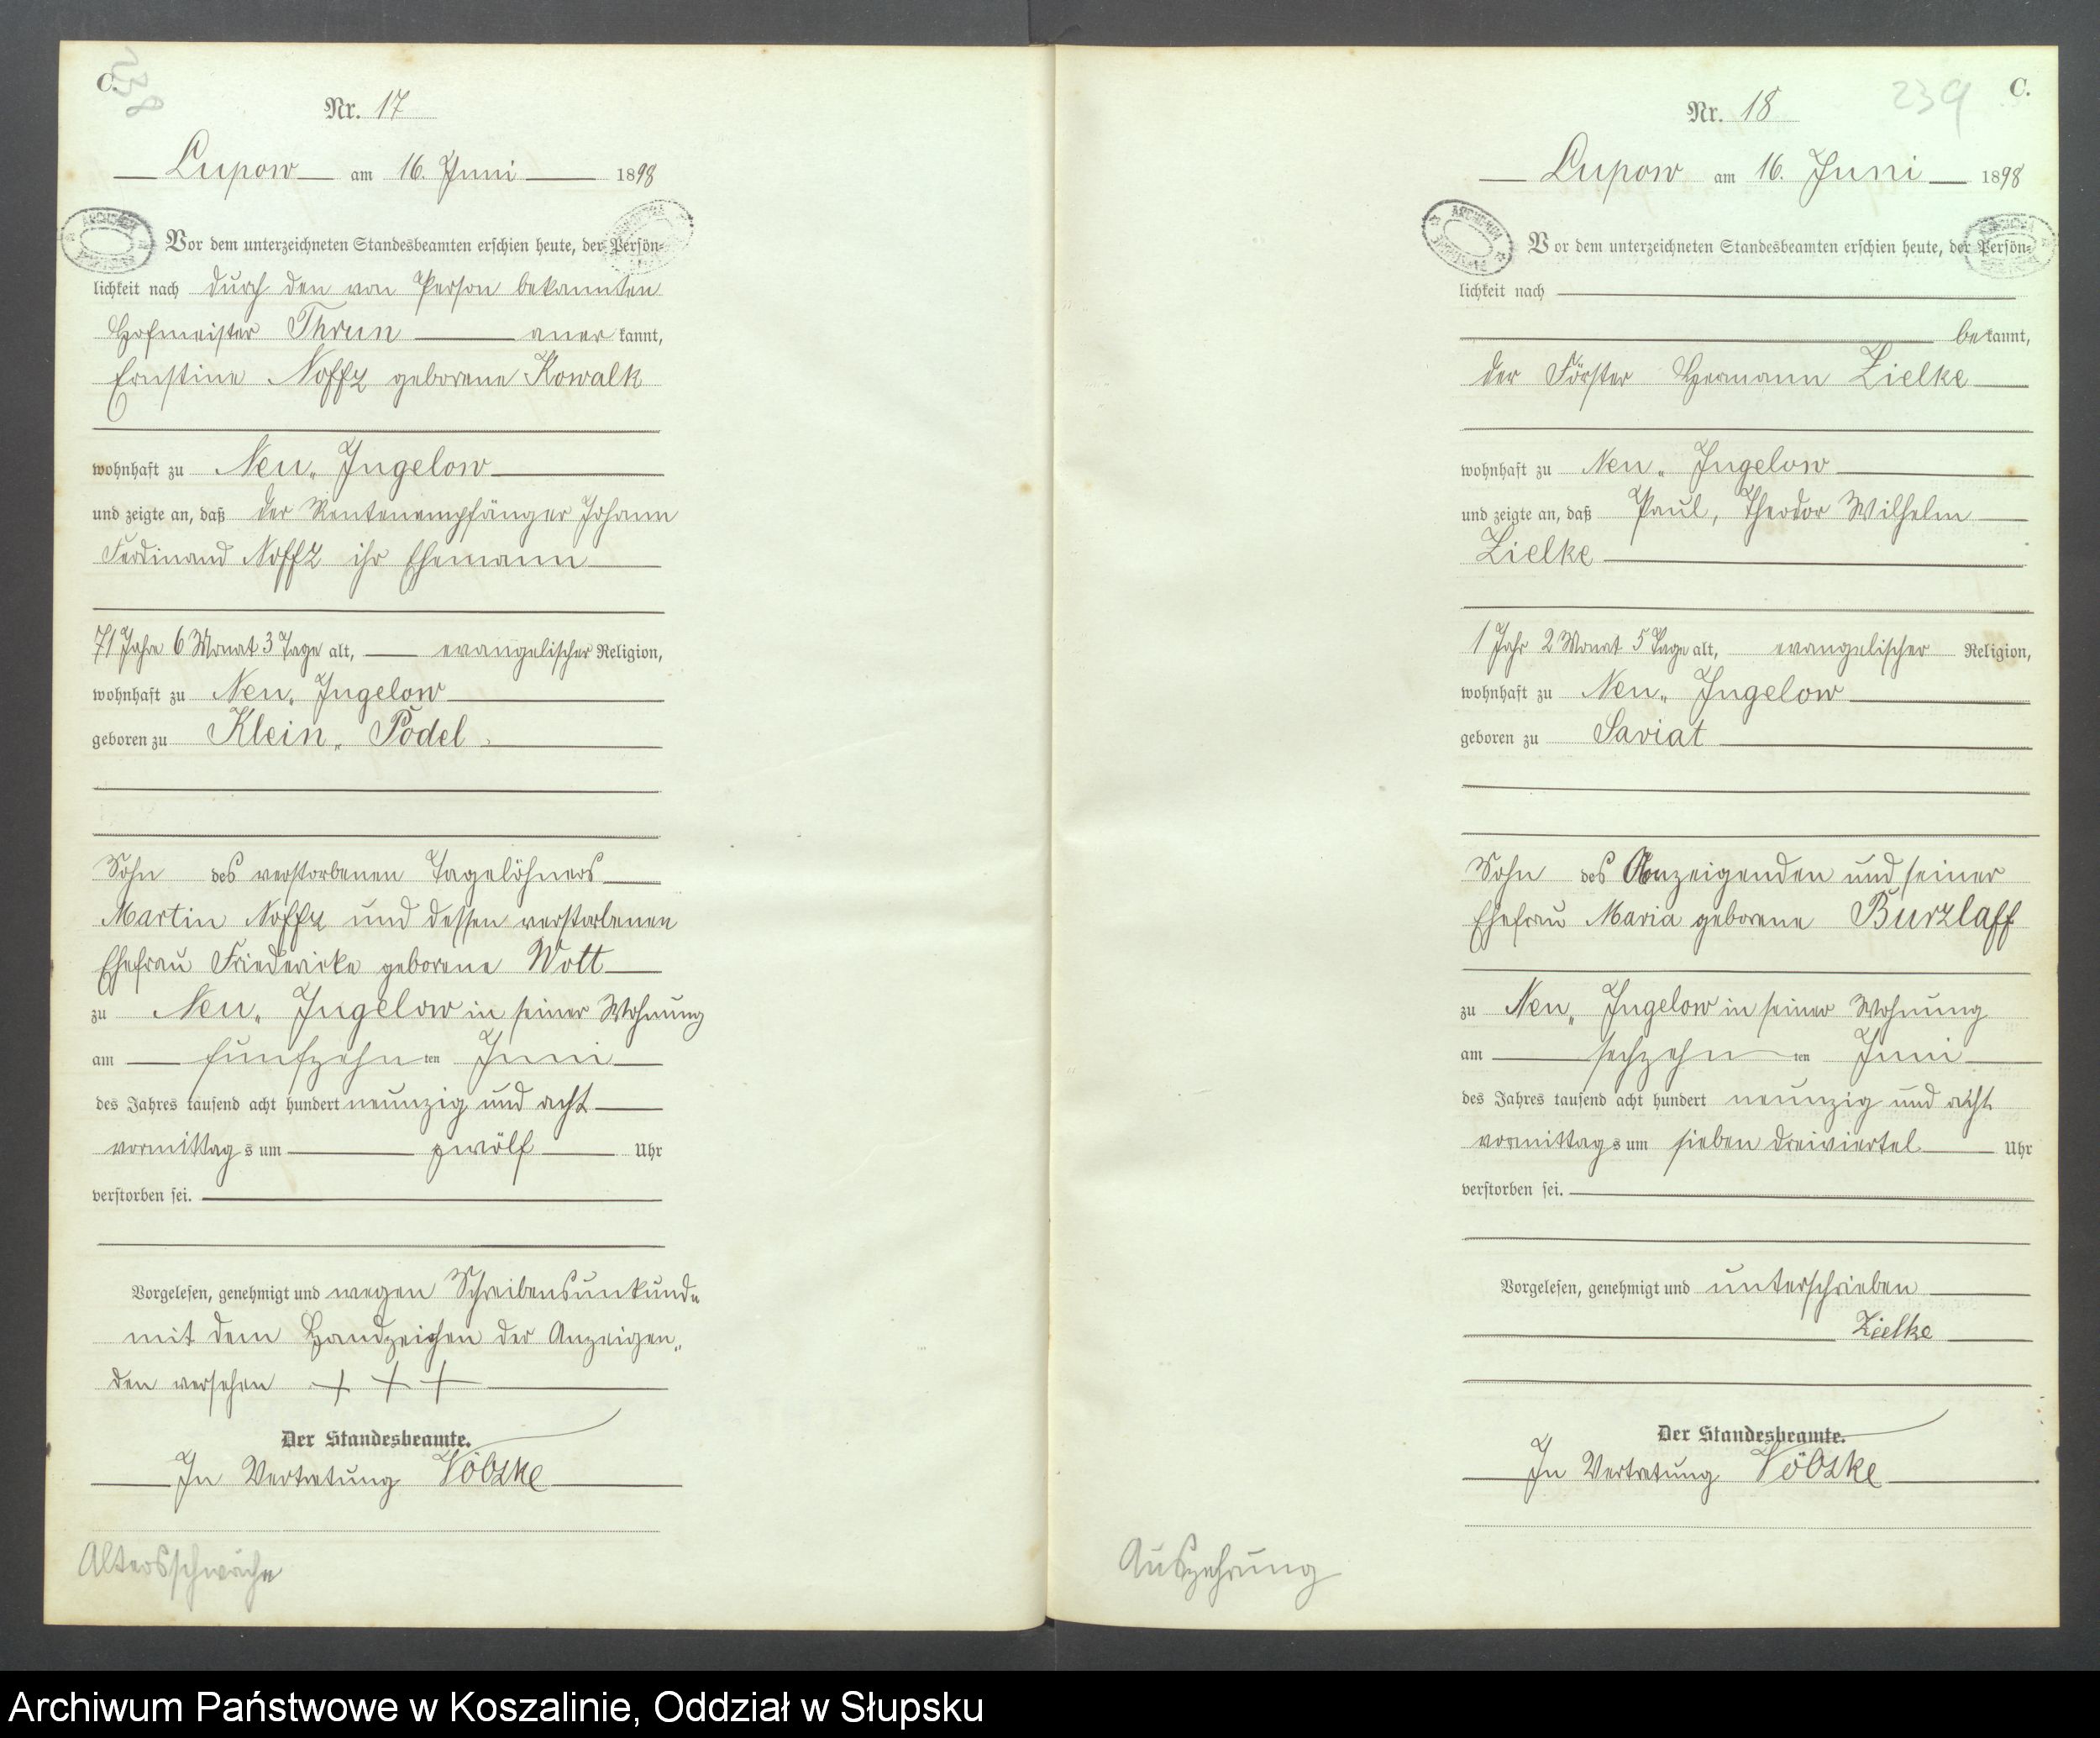 C.
238
Nr. 17
Lupow am 16. Juni 1898
Vor dem unterzeichneten Standesbeamten erschien heute, der Persön-
lichkeit nach durch den von Person bekannten
Hofmeister Thrun aner kannt,
Ernstine Noffz geborene Kowalk
wohnhaft zu Neu„ Jugelow
und zeigte an, daß der Rentenempfänger Johann
Ferdinand Noffz ihr Ehemann
71 Jahre 6 Monat 3 Tage alt, evangelischer Religion,
wohnhaft zu Neu„ Jugelow
geboren zu Klein„ Podel
Sohn des verstorbenen Tagelöhners
Martin Noffz und dessen verstorbenen
Ehefrau Friedericke geborene Wott
zu Neu„ Jugelow in seiner Wohnung
am fünfzehn ten Juni
des Jahres tausend acht hundert neunzig und acht
vormittag s um zwölf Uhr
verstorben sei.
Vorgelesen, genehmigt und wegen Schreibensunkunde
mit dem Handzeichen der Anzeigen„
den versehen + + +
Der Standesbeamte.
In Vertretung
Altersschwäche
239
C.
Nr. 18
Lupow am 16. Juni 1898
Vor dem unterzeichneten Standesbeamten erschien heute, der Persön-
lichkeit nach
be kannt,
der Förster Hermann Zielke
wohnhaft zu Neu„ Jugelow
und zeigte an, daß Paul, Theodor Wilhelm
Zielke
1 Jahr 2 Monat 5 Tage alt, evangelischer Religion,
wohnhaft zu Neu„ Jugelow
geboren zu Saviat
Sohn des Anzeigenden und seiner
Ehefrau Maria geborene Burzlaff
zu Neu„ Jugelow in seiner Wohnung
am sechzehn ten Juni
des Jahres tausend acht hundert neunzig und acht
vormittag s um sieben dreiviertel Uhr
verstorben sei.
Vorgelesen, genehmigt und unterschrieben
Zielke
Der Standesbeamte.
In Vertretung
Auszehrung
Archiwum Państwowe w Koszalinie, Oddział w Słupsku